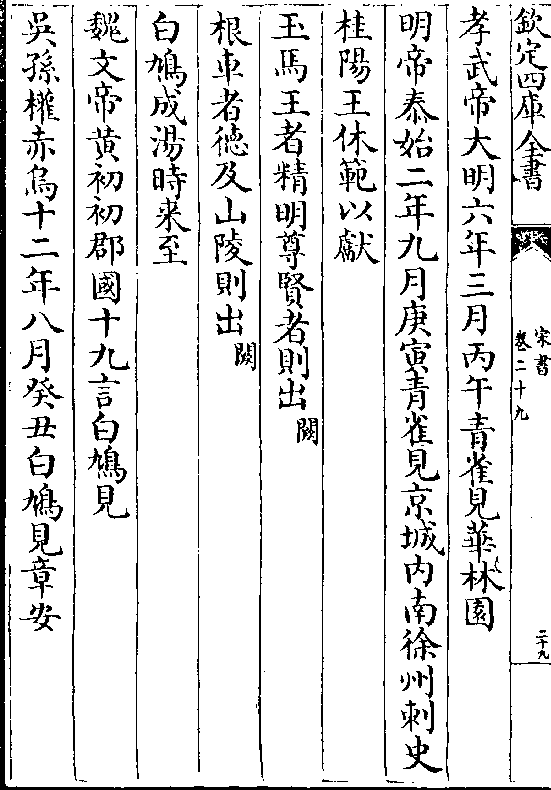 欽定四庫全書
宋書
卷二十九
二十九
孝武帝大明六年三月丙午青雀見華林園
明帝泰始二年九月庚寅青雀見京城内南徐州刺史
桂陽王休範以獻
玉馬王者精明尊賢者則出闕
根車者德及山陵則出闕
白鳩成湯時来至
魏文帝黄初初郡國十九言白鳩見
吳孫權赤烏十二年八月癸丑白鳩見章安